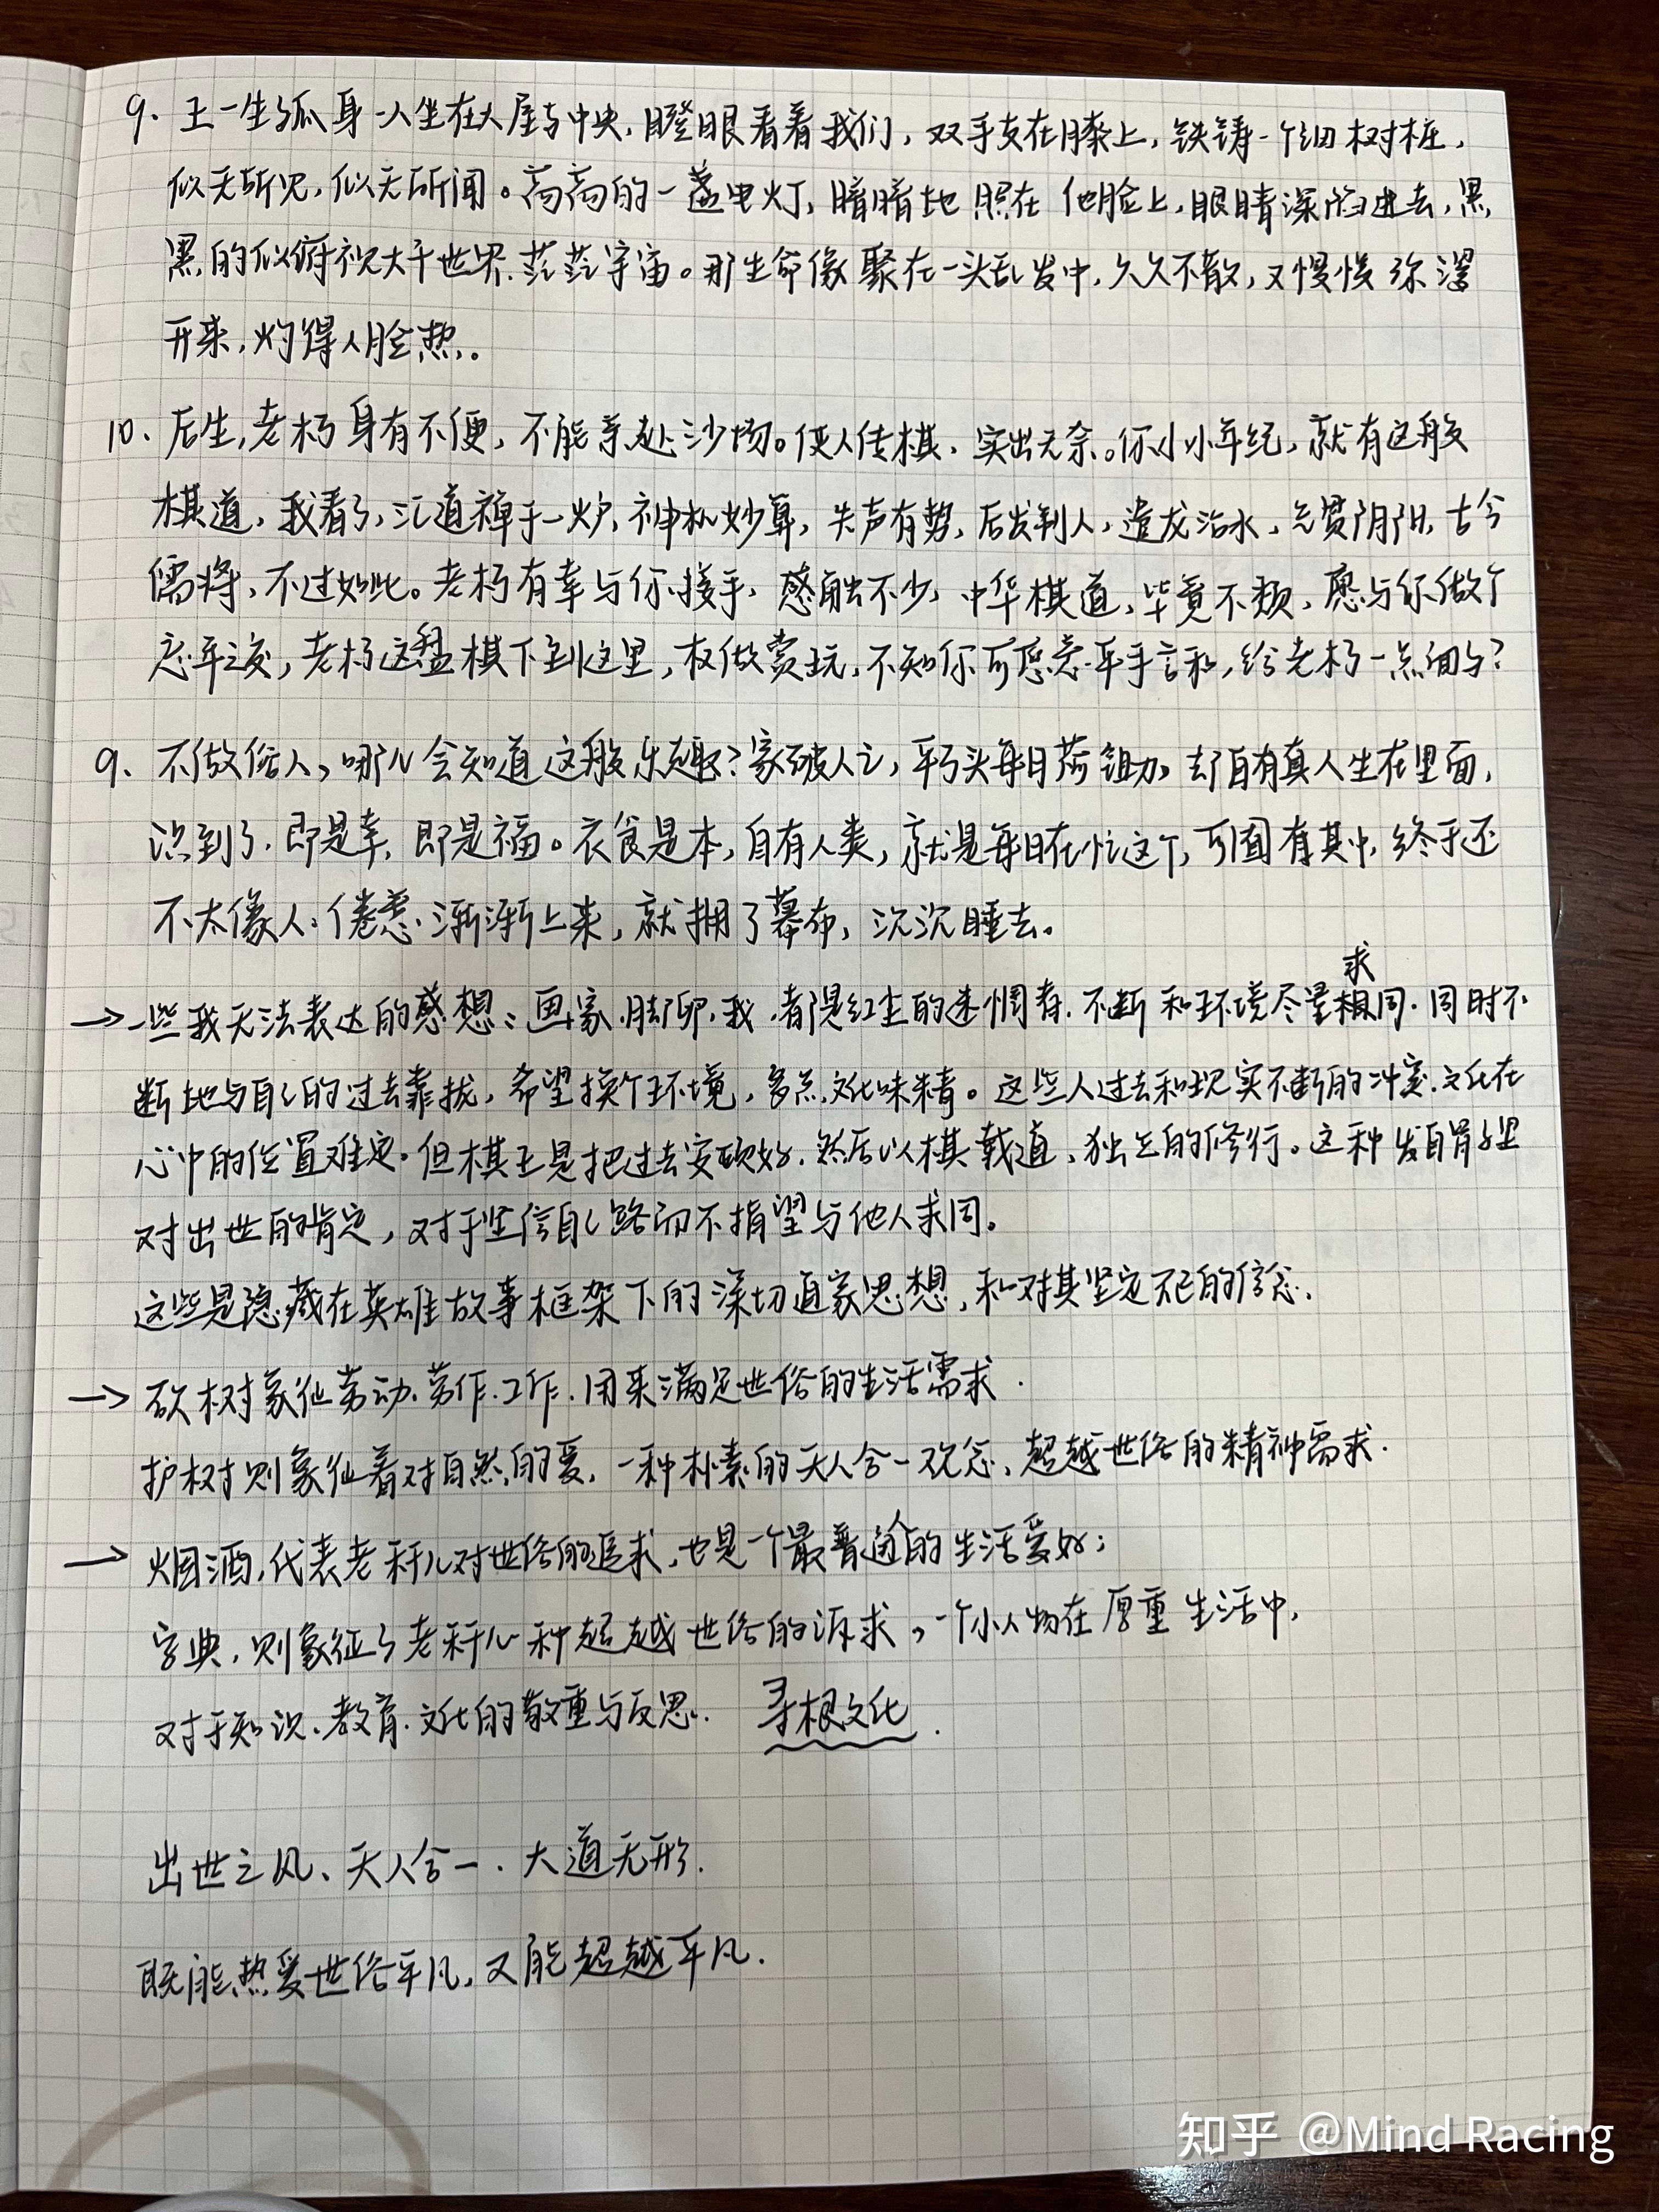 9. 王一生孤身一人坐在大屋子中央,瞪眼看着我们,双手支在膝上,铁铸一个细树桩,
似无所见,似无所闻。高高的一盏电灯,暗暗地照在他脸上,眼睛深陷进去,黑
黑的似俯视大千世界.茫茫宇宙。那生命像聚在一头乱发中,久久不散,又慢慢弥漫
开来,灼得人脸热。
10. 后生,老朽身有不便,不能亲赴沙场。使人传棋,实出无奈。你小小年纪,就有这般
棋道,我看了,汇道禅于一炉,神机妙算,先声有势,后发制人,遣龙治水,气贯阴阳,古今
儒将,不过如此。老朽有幸与你接手,感触不少,中华棋道,毕竟不颓,愿与你做个
忘年之交,老朽这盘棋下到这里,权做赏玩,不知你可愿意平手言和,给老朽一点面子?
9. 不做俗人,哪儿会知道这般乐趣?家破人亡,平了头每日荷锄,却自有真人生在里面,
识到了,即是幸,即是福。衣食是本,自有人类,就是每日在忙这个,可囿在其中,终于还
不太像人.倦意渐渐上来,就拥了幕布,沉沉睡去。
→一些我无法表达的感想:画家.脚卵.我.都是红尘的迷惘者.不断和环境尽量相同.同时不
求
断地与自己的过去靠拢,希望换个环境,多点文化味精。这些人过去和现实不断的冲突.文化在
心中的位置难定.但棋王是把过去安顿好.然后以棋载道,独立的修行。这种发自骨子里
对出世的肯定,对于坚信自己路而不指望与他人求同。
这些是隐藏在英雄故事框架下的深切道家思想,和对其坚定不已的信念.
→ 砍树象征劳动.劳作.工作.用来满足世俗的生活需求.
护树则象征着对自然的爱,一种朴素的天人合一观念,超越世俗的精神需求.
→ 烟酒,代表老秆儿对世俗的追求,也是一个最普通的生活爱好;
字典,则象征了老秆儿一种超越世俗的诉求,一个小人物在厚重生活中,
对于知识.教育.文化的敬重与反思. 寻根文化.
出世之风、天人合一.大道无形.
既能热爱世俗平凡,又能超越平凡.
知乎 @Mind Racing